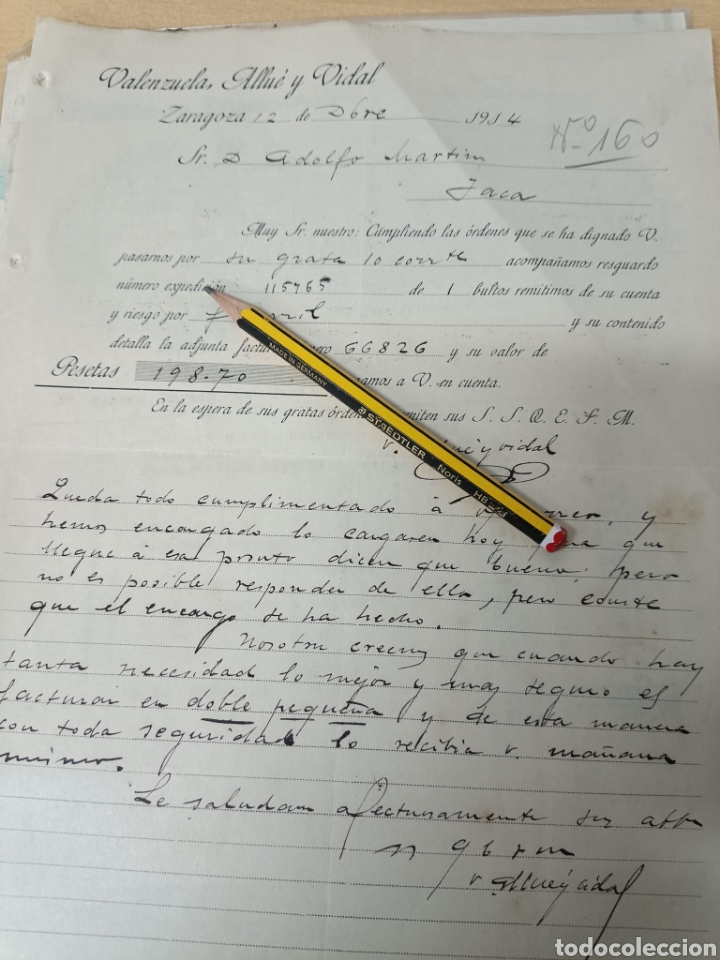 Valenzuela, Allué y Vidal
Zaragoza 12 de Dbre 1914
Nº 160
Sr. D. Adolfo Martin
Jaca
Muy Sr. nuestro: Cumpliendo las órdenes que se ha dignado V.
pasarnos por su grata 10 corrte acompañamos resguardo
número expedición 115765 de 1 bultos remitimos de su cuenta
y riesgo por y su contenido
detalla la adjunta factur 66826 y su valor de
Pesetas 198.70 amos a V. en cuenta.
En la espera de sus gratas órden miten sus S. S. Q. E. S. M.
V. y vidal
MADE IN GERMANY
STAEDTLER Noris HB
Queda todo cumplimentado á y
hemos encargado lo cargasen hoy que
llegue á esa pronto dicen que bueno; pero
no es posible responder de ello, pero conste
que el encargo se ha hecho.
Nosotros creemos que cuando hay
tanta necesidad lo mejor y mas seguro es
facturar en doble pequeña y de esta manera
con toda seguridad lo recibia v. mañana
mismo.
Le saludan afectuosamente sus atts
ss q b s m
V. Allué y vidal
todocoleccion